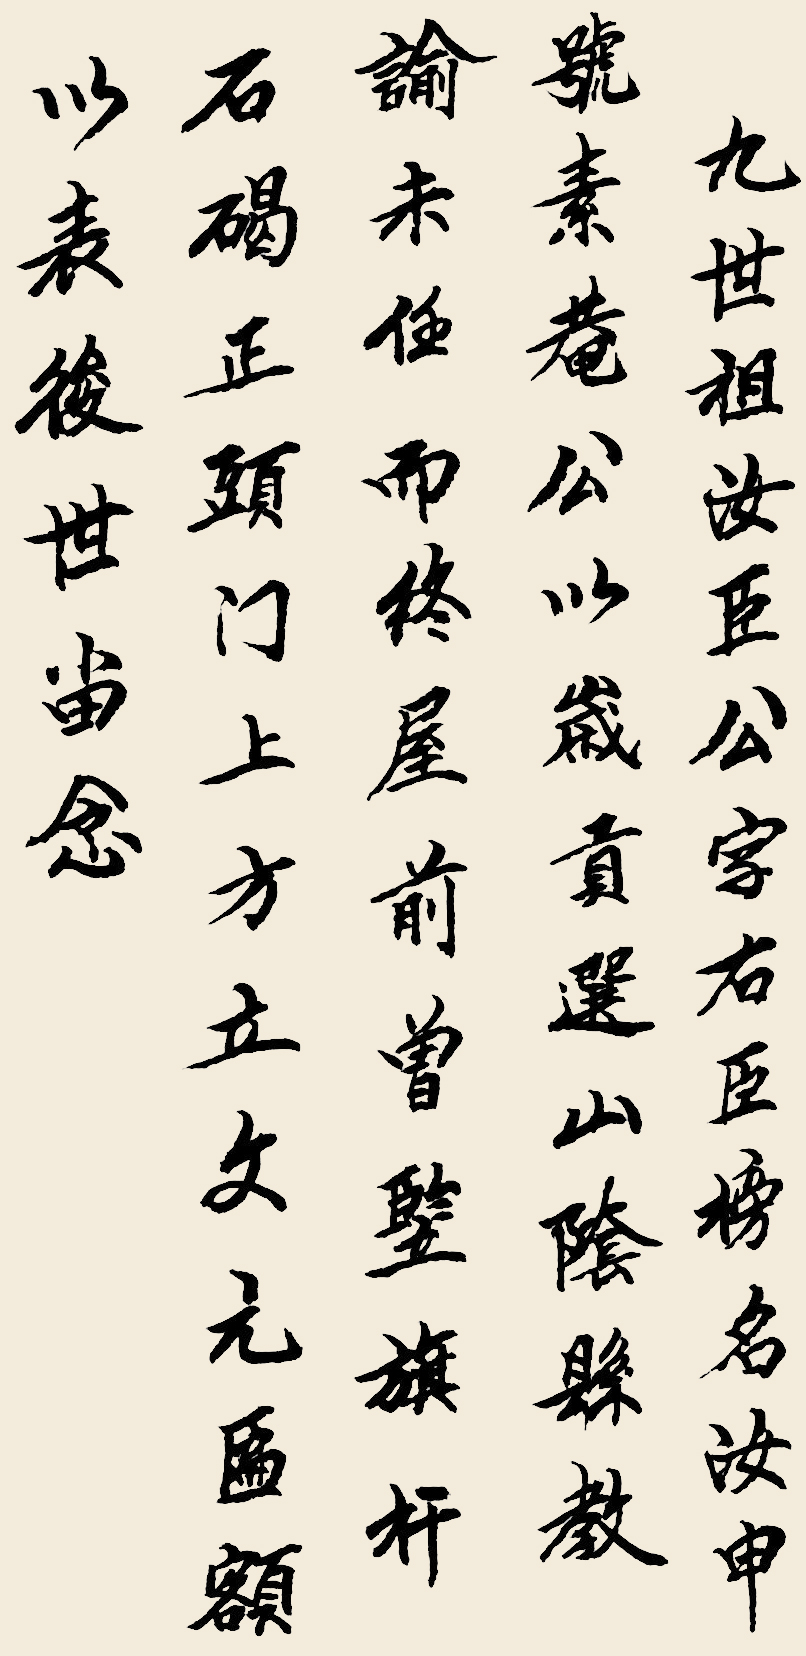 九世祖汝臣公字右臣榜名汝申
號素菴公以歲貢選山陰縣教
諭未任而终屋前曾竪旗杆
石碣正頭门上方立文元匾額
以表後世当念